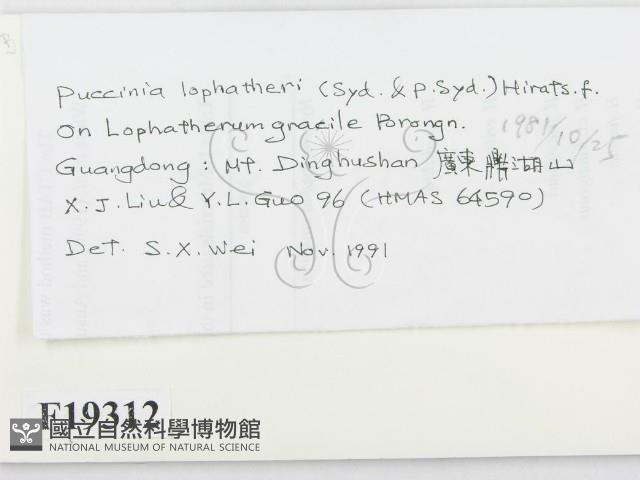 Puccinia lophatheri (Syd. & P. Syd.) Hirats. f.
on Lophatherum gracile Brongn.
1981/10/25
Guangdong : Mt. Dinghushan 廣東鼎湖山
X. J. Liu & Y. L. Guo 96 (HMAS 64590)
Det. S. X. Wei Nov. 1991
F19312
國立自然科學博物館
NATIONAL MUSEUM OF NATURAL SCIENCE